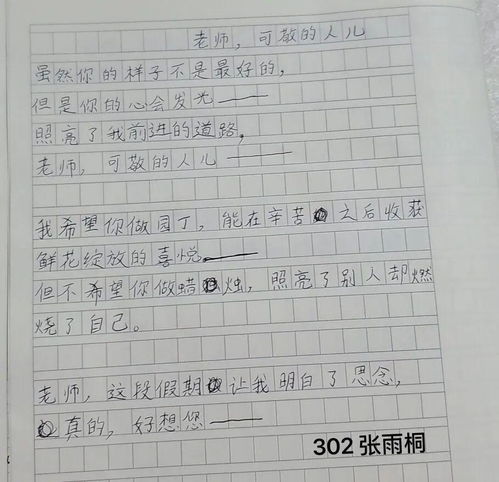 老师，可敬的人儿
虽然你的样子不是最好的，
但是你的心会发光——
照亮了我前进的道路，
老师，可敬的人儿——
我希望你做园丁，能在辛苦之后收获
鲜花绽放的喜悦——
但不希望你做蜡烛，照亮了别人却燃
烧了自己。
老师，这段假期让我明白了思念，
真的，好想您——
302 张雨桐